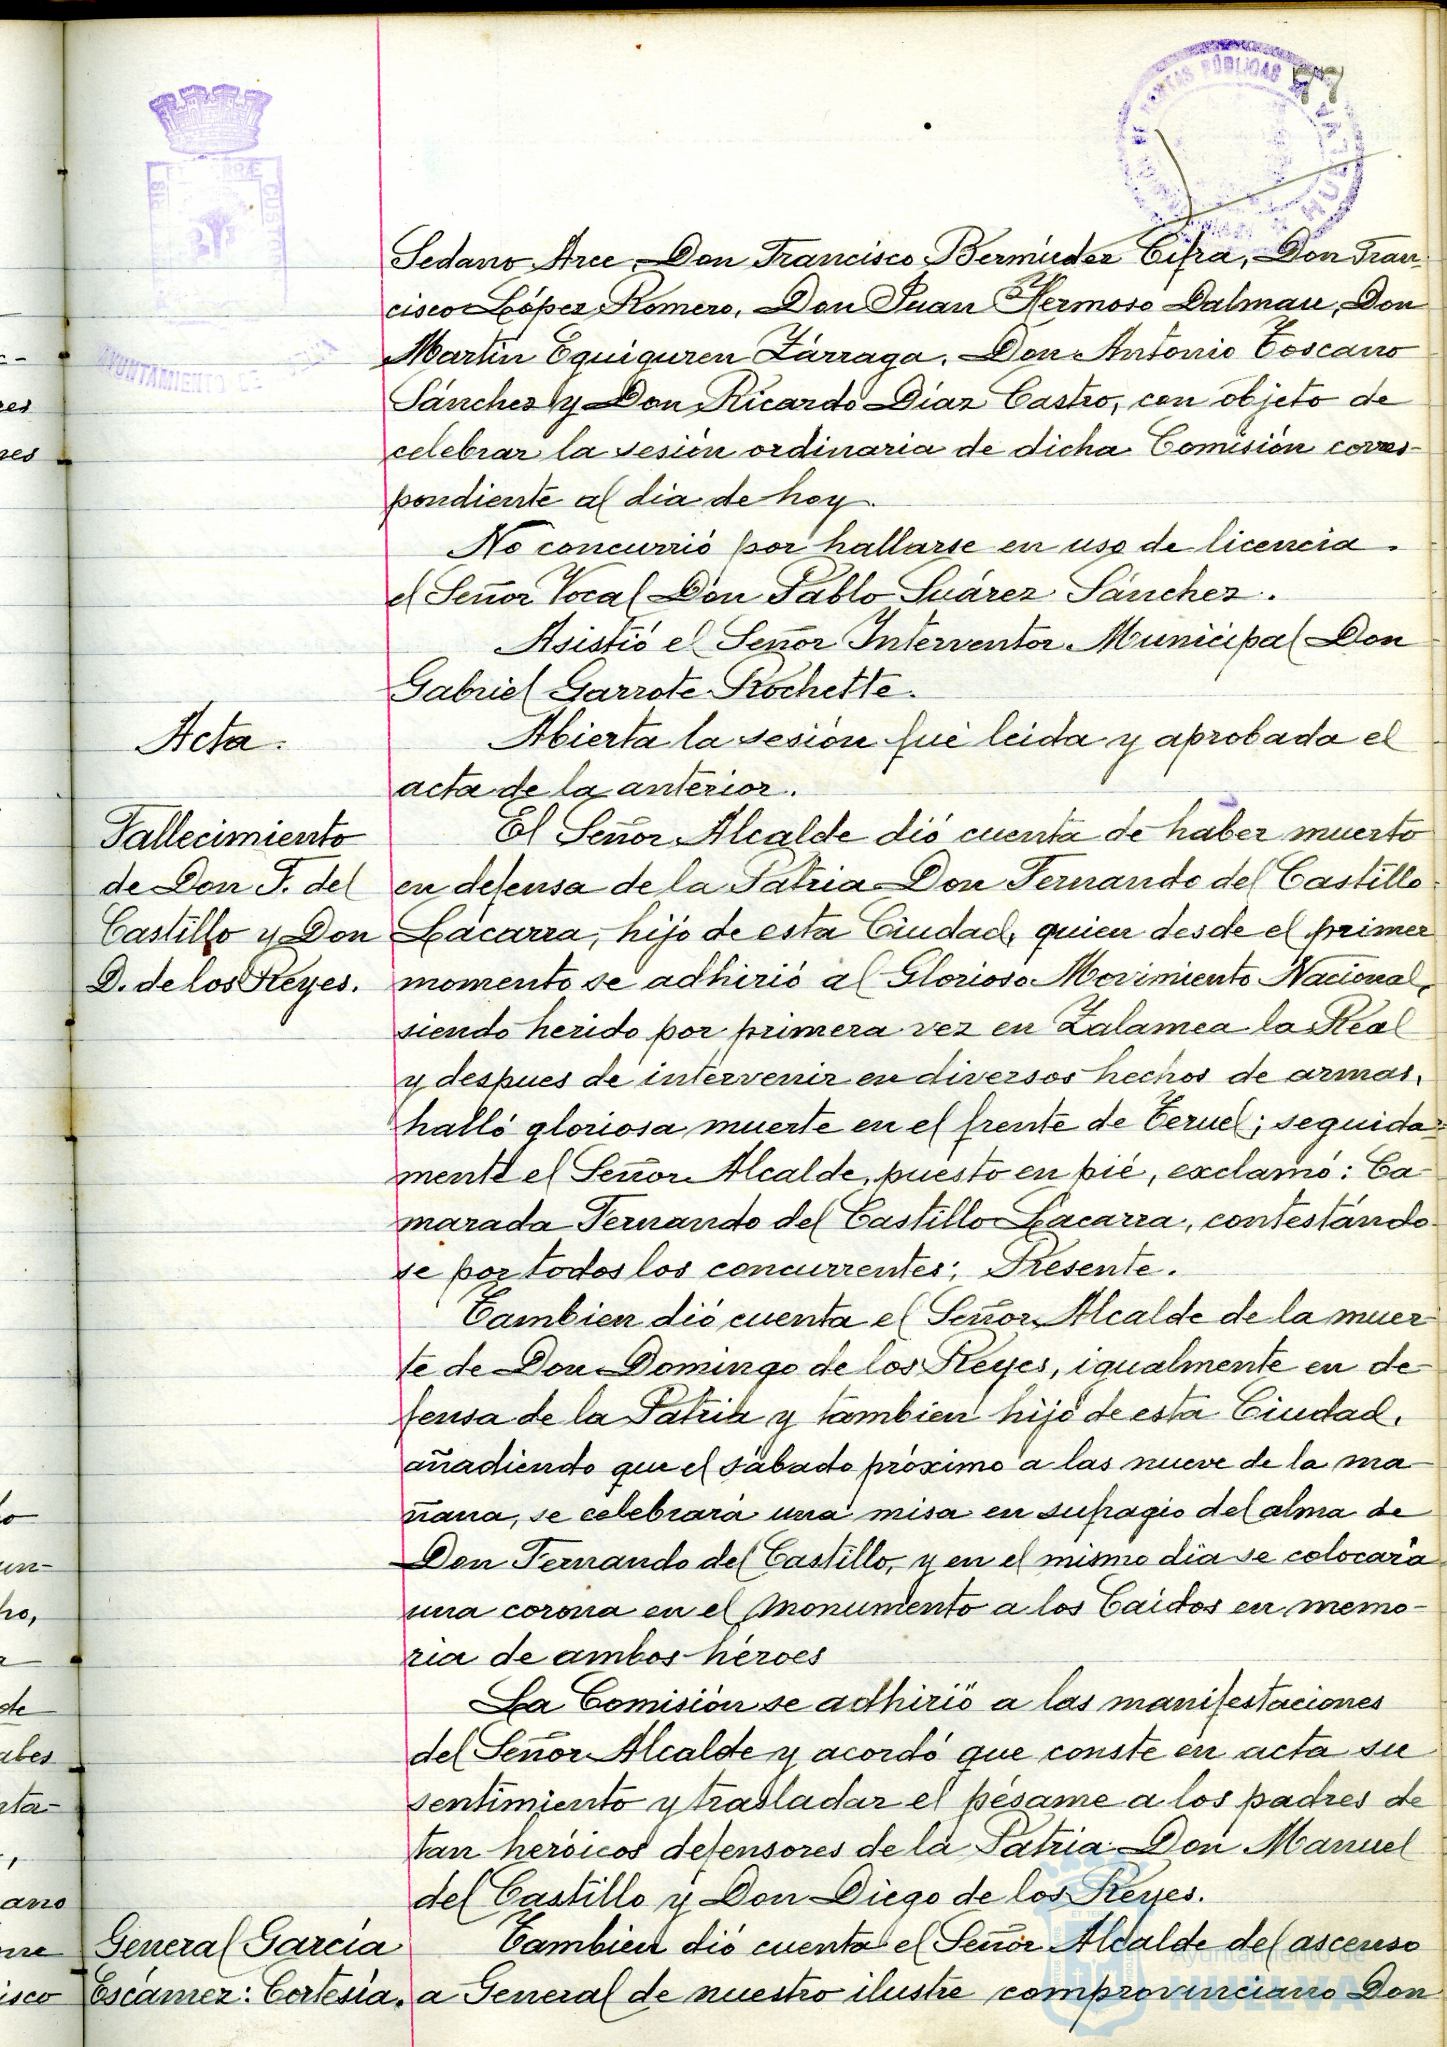 77
DE RENTAS PÚBLICAS
HUELVA
AYUNTAMIENTO DE
Sedano Arce, Don Francisco Bermúdez Cifra, Don Fran-
cisco López Romero, Don Juan Hermoso Dalmau, Don
Martin Equiguren Zárraga, Don Antonio Toscano
Sánchez y Don Ricardo Díaz Castro, con objeto de
celebrar la sesión ordinaria de dicha Comisión corres-
pondiente al dia de hoy.
No concurrió por hallarse en uso de licencia.
el Señor Vocal Don Pablo Suárez Sánchez.
Asistió el Señor Interventor Municipal Don
Gabriel Garrote Rochette.
Acta.
Abierta la sesión fué leida y aprobada el
acta de la anterior.
Fallecimiento
de Don F. del
Castillo y Don
D. de los Reyes.
El Señor Alcalde dió cuenta de haber muerto
en defensa de la Patria Don Fernando del Castillo
Lacarra, hijo de esta Ciudad, quien desde el primer
momento se adhirió al Glorioso Movimiento Nacional,
siendo herido por primera vez en Zalamea la Real
y despues de intervenir en diversos hechos de armas,
halló gloriosa muerte en el frente de Teruel; seguida-
mente el Señor Alcalde, puesto en pié, exclamó: Ca-
marada Fernando del Castillo Lacarra, contestándo-
se por todos los concurrentes; Presente.
Tambien dió cuenta el Señor Alcalde de la muer-
te de Don Domingo de los Reyes, igualmente en de-
fensa de la Patria y tambien hijo de esta Ciudad,
añadiendo que el sábado próximo a las nueve de la ma-
ñana, se celebrará una misa en sufragio del alma de
Don Fernando del Castillo, y en el mismo dia se colocará
una corona en el Monumento a los Caidos en memo-
ria de ambos héroes
La Comisión se adhirió a las manifestaciones
del Señor Alcalde y acordó que conste en acta su
sentimiento y trasladar el pésame a los padres de
tan heróicos defensores de la Patria Don Manuel
del Castillo y Don Diego de los Reyes.
General García
Escámez: Cortesía.
Tambien dió cuenta el Señor Alcalde del ascenso
a General de nuestro ilustre comprovinciano Don
Ayuntamiento de
HUELVA